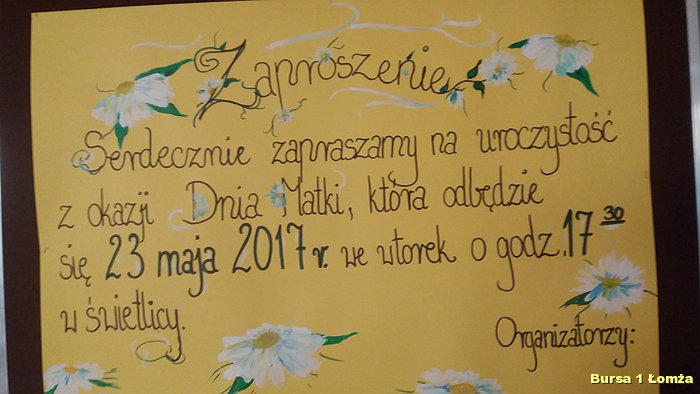 Zaproszenie
Serdecznie zapraszamy na uroczystość
z okazji Dnia Matki, która odbędzie
się 23 maja 2017 r. we wtorek o godz. 17 30
w świetlicy.
Organizatorzy:
Bursa 1 Łomża